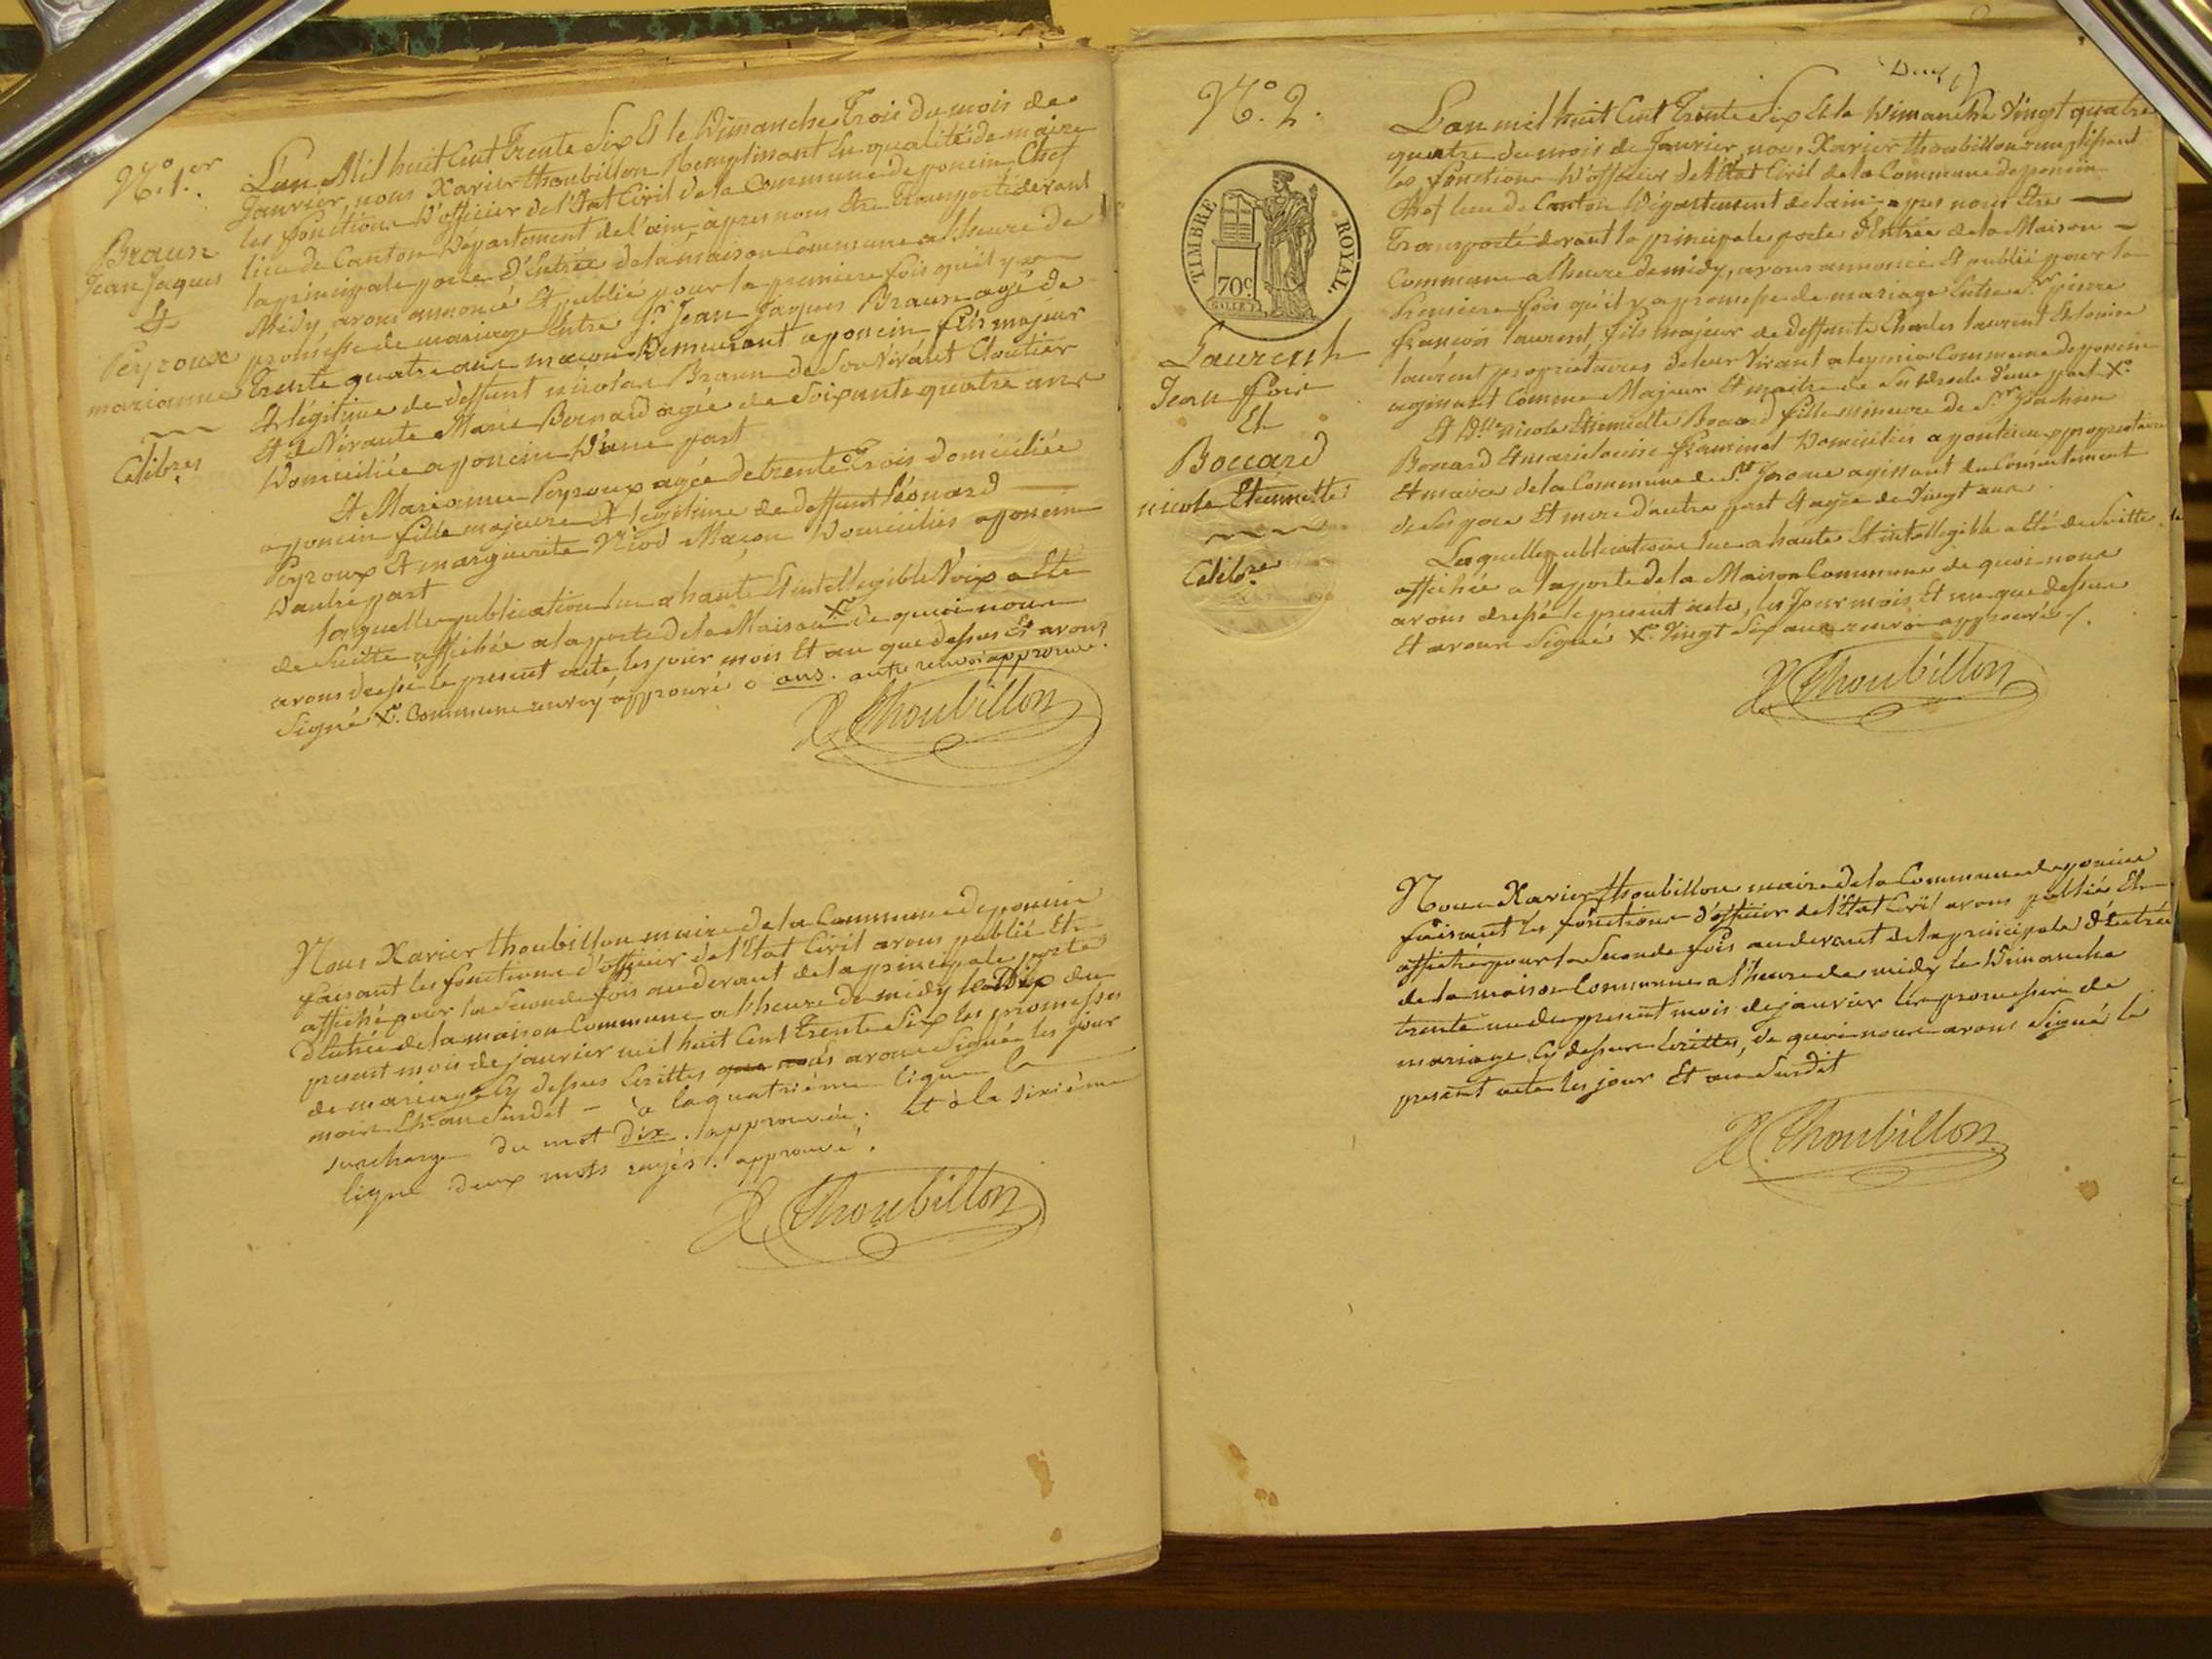 N.° 1.er
Braun
Jean Jaques
Et
Peyroux
marianne
Celibres
L'an Mil huit Cent Trente Six Et le Dimanche Trois du mois de
Janvier, nous Xavier thoubillon Remplissant En qualité de maire
les fonctions D'officier de l'Etat Civil de la Commune de poncin Chef
lieu de Canton Département de l'ain, apres nous Etre Transporté devant
la principale porte D'Entrée de la maison Commune a l'heure de
Midy avons annoncé Et publié pour la premiere fois qu'il y a
promesse de mariage Entre Sr. Jean Jaques Braun agé de
Trente quatre ans maçon Demeurant a poncin fils majeur
Et légitime de deffunt nicolas Braun de Son Vivant Cloutier
Et de Vivante Marie Bornard agée de Soixante quatre ans
Domiciliée a poncin D'une part
Et Marianne Peyroux agée de trente Trois domiciliée
a poncin fille majeure Et legitime de deffunt Léonard
Peyroux Et marguerite Niod Maçon Domiciliés a poncin
D'autre part
laquelle publication lue a haute Et intellegible Voix a Eté
de Suitte affichée a la porte de la Maison X.° de quoi nous
avons dressé le present acte, les jour mois Et an que dessus Et avons
Signé X.° Commune renvoy approuvé o ans. autre renvoi approuvé.
X. Thoubillon
Nous Xavier thoubillon maire de la Commune de poncin
faisant les fonctions d'officier de l'Etat Civil avons publié Et
affiché pour la Seconde fois au devant de la principale porte
d'Entrée de la maison Commune a l'heure de midy le Dix du
present mois de janvier mil huit Cent Trente Six les promesses
de mariage Cy dessus Ecrittes que nous avons Signé les jour
mois Et an Susdit - à la quatrième ligne la
surcharge du mot dix. approuvée. et à la sixième
ligne deux mots rayés. approuvé.
X. Thoubillon
Deux
N.° 2.
TIMBRE ROYAL.
70c
Laurent
Jean fois
Et
Boccard
nicole Etiennette
Celibre
L'an mil huit Cent Trente Six Et le Dimanche Vingt quatre
quatre du mois de Janvier, nous Xavier thoubillon remplissant
les fonctions D'officier de l'Etat Civil de la Commune de poncin
Chef lieu de Canton Département de l'ain apres nous Etre
Transporté devant la principale porte d'Entrée de la Maison
Commune a l'heure de midy, avons annoncé Et publié pour la
Premiere fois qu'il y a promesse de mariage Entre Sr. pierre
françois laurent, fils majeur de deffunts Charles laurent Et louise
laurent propriétaires de leur Vivant a leymia Commune de poncin
agissant Comme Majeur Et maitre de Ses droits d'une part X.°
Et Dlle nicole Etiennette Bocard fille mineure de Sr. Joachim
Bocard Et marie louise francinet Domiciliés a propriétaire
Et maire de la Commune de St. Jerome agissant du Consentement
de Ses pere Et mere d'autre part Et agée de Vingt ans
Laquelle publication lue a haute Et intellegible a Eté de Suitte
affichée a la porte de la Maison Commune de quoi nous
avons dressé le present acte, les Jour mois Et an que dessus
Et avons Signé X.° Vingt Six ans renvoi approuvé
X. Thoubillon
Nous Xavier thoubillon maire de la Commune de poncin
faisant les fonctions d'officier de l'Etat Civil avons publié Et
affiché pour la Seconde fois au devant de la principale d'Entrée
de la maison Commune a l'heure de midy le Dimanche
trente un du present mois de janvier les promesses de
mariage Cy dessus Ecrittes, de quoi nous avons Signé le
present acte les jour Et an Susdit
X. Thoubillon